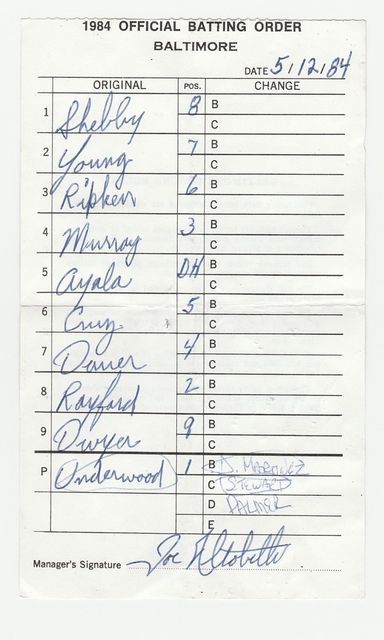 1984 OFFICIAL BATTING ORDER
BALTIMORE
DATE 5/12/84
ORIGINAL POS. CHANGE
1 Shelby 8 B
C
2 Young 7 B
C
3 Ripken 6 B
C
4 Murray 3 B
C
5 Ayala DH B
C
6 Cruz 5 B
C
7 Dauer 4 B
C
8 Rayford 2 B
C
9 Dwyer 9 B
C
P Underwood 1 B D. MARTINEZ
C STEWART
D PALMER
E
Manager's Signature Joe Altobelli